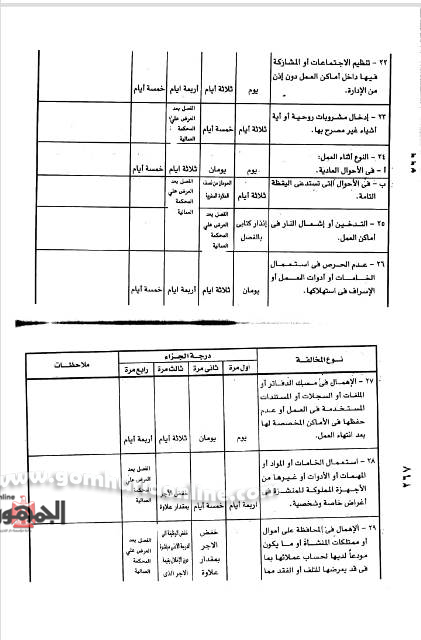 ٢٢ - تنظيم الاجتماعات أو المشاركة
فيها داخل أماكن العمل دون إذن
من الإدارة.
يوم
ثلاثة أيام
أربعة أيام
خمسة أيام
٢٣ - إدخال مشروبات روحية أو أية
أشياء غير مصرح بها.
ثلاثة أيام
خمسة أيام
الفصل بعد
العرض على
المحكمة
العمالية
٢٤ - النوع أثناء العمل:
أ - فى الأحوال العادية.
يوم
يومان
ثلاثة أيام
خمسة أيام
ب - فى الأحوال التى تستدعى اليقظة
التامة.
ثلاثة أيام
الحرمان من نصف
العلاوة السنوية
الفصل بعد
العرض على
المحكمة
العمالية
٢٥ - التدخين أو إشعال النار فى
أماكن العمل.
إنذار كتابى
بالفصل
الفصل بعد
العرض على
المحكمة
العمالية
٢٦ - عدم الحرص فى استعمال
الخامات أو أدوات العمل أو
الإسراف فى استهلاكها.
يومان
ثلاثة أيام
أربعة أيام
خمسة أيام
نوع المخالفة
درجة الجزاء
ملاحظات
اول مرة
ثانى مرة
ثالث مرة
رابع مرة
٢٧ - الإهمال فى مسك الدفاتر أو
الملفات أو السجلات أو المستندات
المستخدمة فى العمل أو عدم
حفظها فى الأماكن المخصصة لها
بعد انتهاء العمل.
يوم
يومان
ثلاثة أيام
أربعة أيام
٢٨ - استعمال الخامات أو المواد أو
المهمات أو الأدوات أو غيرها من
الأجهزة المملوكة للمنشأة فى
أغراض خاصة وشخصية.
أربعة أيام
خمسة أيام
خفض الأجر
بمقدار علاوة
الفصل بعد
العرض على
المحكمة
العمالية
٢٩ - الإهمال فى المحافظة على أموال
أو ممتلكات المنشأة أو ما يكون
مودعاً لديها لحساب عملائها بما
قد يعرضها للتلف أو الفقد مما
خفض
الاجر
بمقدار
علاوة
خفض الوظيفة إلى
الاجر الذى
الفصل بعد
العرض على
المحكمة
العمالية
٢٦٧
www.gomhuriaonline.com
online